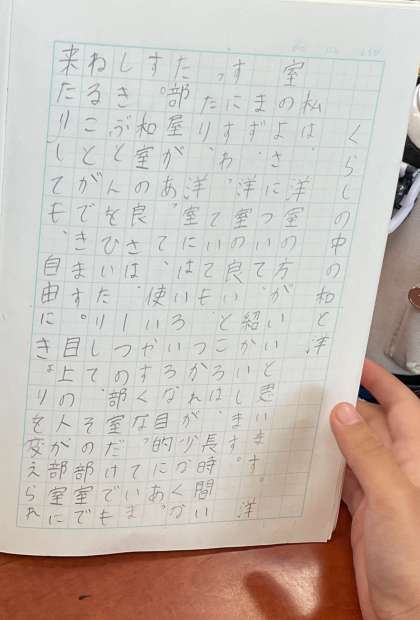 くらしの中の和と洋
私は、洋室の方がいいと思います。洋
室のよさについて紹かいします。
まず、洋室の良いところは、長時間い
すにすわっていてもつかれが少なくな
ったり、洋室には、いろいろな目的にあっ
た部屋があって、使いやすくなっていま
す。和室の良さは、一つの部室だけでも
しきぶとんをひいたりして、その部室で
ねることができます。目上の人が部室に
来たりしても、自由にきょりを変えられ